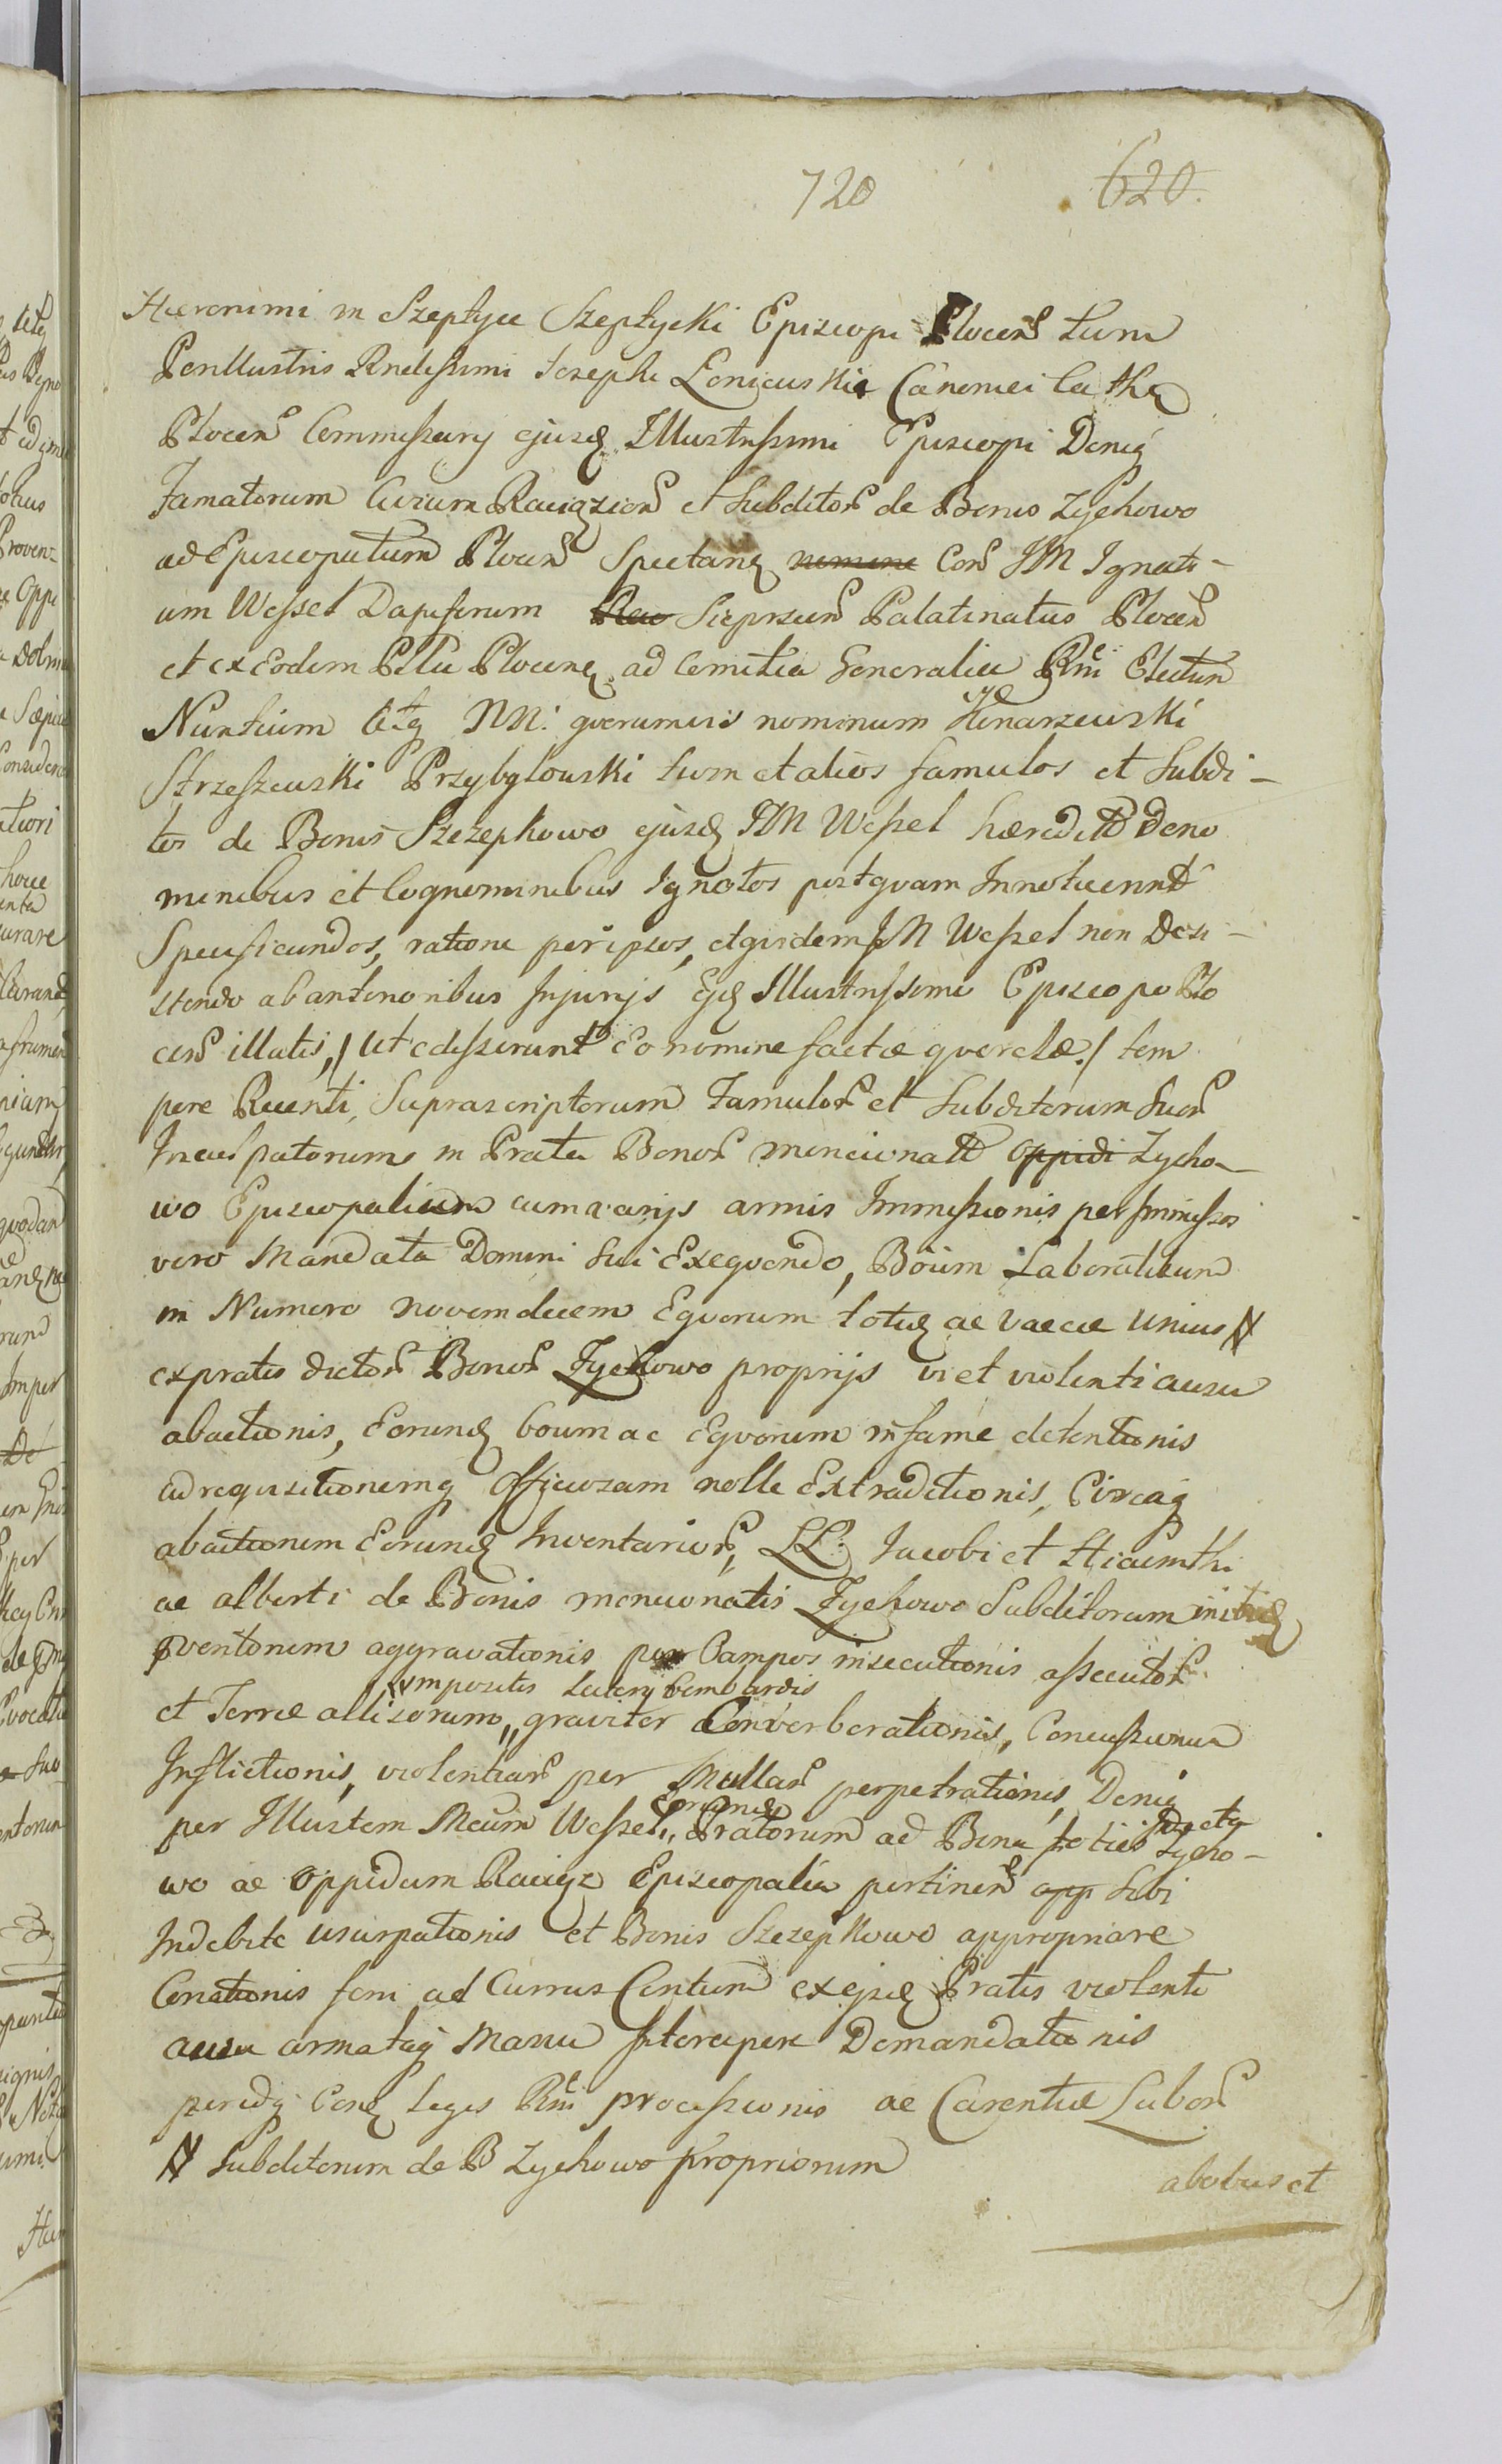 720 620.
Hieronimi in Szeptyce Szeptycki Episcopi Plocen tum
Perillustris Rndissimi Josephi Leniewski Canonici Cathe
Plocen Commissarij ejusd Illustrissimi Episcopi Deniq
Famatorum Civium Raciązien et Subditor de Bonis Zychowo
ad Episcopatum Plocen Spectan nomine Con JM Ignati-
um Wessel Dapiferum Siepscen Palatinatus Plocen
et ex Eodem Pltu Plocen ad Comitia Generalia Rni Electum
Nuntium Ettq NN. qverumvis nominum Konarzewski
Strzeszewski Przybyłowski tum et alios famulos et Subdi-
tos de Bonis Szczepkowo ejusd JM Wessel hæredittt de no
minibus et Cognominibus Ignotos postqvam Innotuerint
Specificandos, ratione per ipsos, etqvidem JM Wessel non Desi-
stendo ab anterioribus Injurijs Ejd Illustrissimo Episcopo Plo
cen illatis, / ut edisserunt Eo nomine factæ qverelæ / tem
pore Recenti, Suprascriptorum Famulor et Subditorum Suor
Inculpatorum in Prata Bonor mencionatt oppidi Zycho-
wo Episcopalium cum varijs armis Immissionis per Immissos
vero Mandata Domini Sui Exeqvendo, Boum Laboratitium
in Numero novemdecem Eqvorum totid ac Vaccæ unius #
ex pratis dictor Bonor Zychowo proprijs vi et violenti ausu
abactionis, Eorund boum ac Eqvorum in fame detentionis
ad requisitionemq Officiosam nolle Extraditionis, Circaq
abactionem Eorund Inventarior, LL. Jacobi et Hiacinthi
ac Alberti de Bonis mencionatis Zychowo Subditorum
ventorum aggravationis per Campos insecutionis assecutor
impositis bombardis
et Terræ allisorum, graviter Converberationis, Concussionum
Inflictionis, violentiar per Mullar perpetrationis, Deniq
Eorund
per Illustem Meum Wessel, Pratorum ad Bona toties dicta Zycho-
wo ac Oppidum Raciąz Episcopalia pertinen app Sibi
Indebite usurpationis et Bonis Szczepkowo appropriare
Conationis feni ad Currus Centum ex ejsd Pratis violento
ausu armataq Manu Intercipere Demandationis
per idq Con Leges Rni processionis ac Carentiæ Labor
# Subditorum de B Zychowo Propriorum
ab obus et